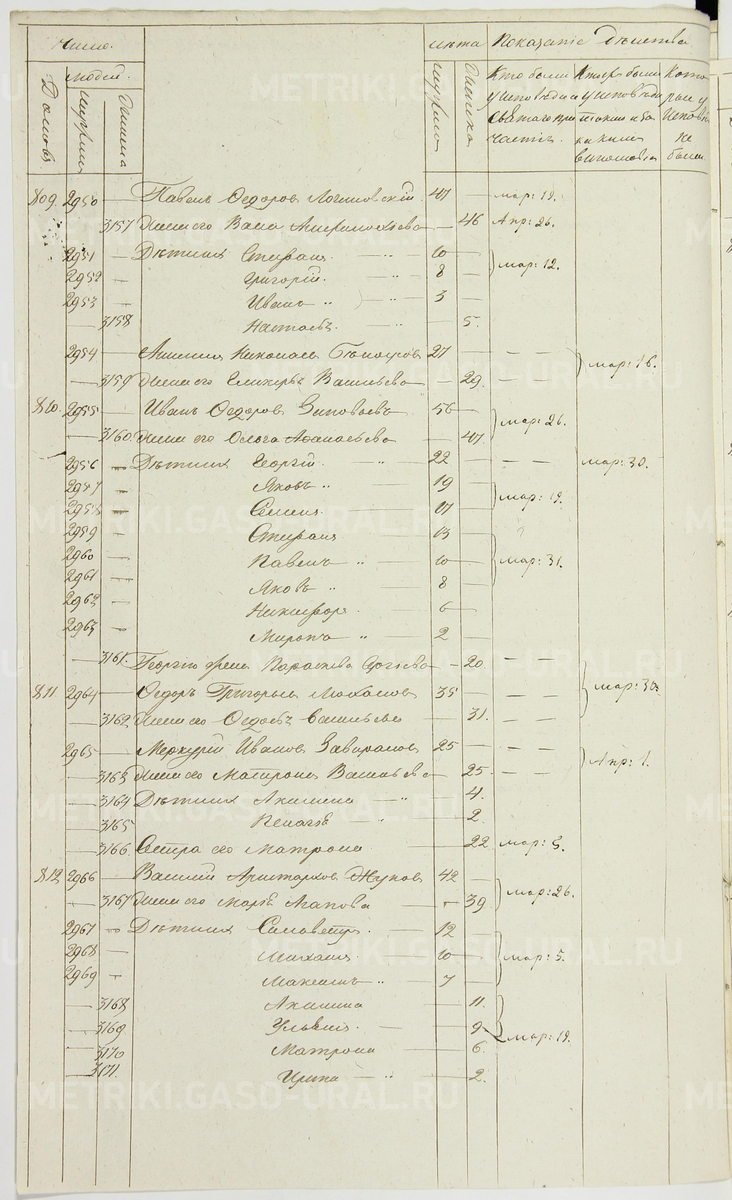 Число. лѣта Показанiе дѣйства
людей.
Домовъ мужеска женска мужеска женска
Кто были у исповѣди и святаго причастiя
Которые были у исповѣди токмо и за какимъ винословiемъ
Которые у исповѣди не были
809. 2950 — Павелъ Ѳедоровъ 47 — мар: 19.
— 3157 Жена его — 46 Апр: 26.
2951 — Дѣти ихъ Стефанъ — " — 10 —
2952 — Григорiй. — " — 8 — мар: 12.
2953 — Иванъ " — 3 —
— 3158 Настасья — " — 5.
2954 — Николаевъ 27 — — —
— 3159 Жена его Васильева — 29. — — мар: 16.
810. 2955 — Иванъ Ѳедоровъ Зиновьевъ 56 —
— 3160 Жена его Ольга Аѳанасьева — 47. мар: 26.
2956 — Дѣти ихъ Георгiй — " — 22 — — — мар: 30.
2957 — Яковъ " — 19 —
2958 — Семенъ — 17 — мар: 19.
2959 — Стефанъ — 13 —
2960 — Павелъ " — 10 — мар: 31.
2961 — Яковъ " — 8 —
2962 — Никифоръ — 6 —
2963 — Миронъ " — 2 —
— 3161. Георгiю жена Параскева — 20. — —
811 2964 — Ѳедоръ Григорьевъ 35 — — — мар: 30.
— 3162. Жена его Ѳедосья Васильева — 31. — —
2965 — Меркурiй Ивановъ 25 — — —
— 3163 Жена его Матрона Васильева — 25 — — Апр: 1.
— 3164 Дѣти ихъ Акилина — " — 4.
— 3165 Пелагея " — 2.
— 3166. Сестра его Матрона — 22 мар: 5.
812 2966 — Василiй Аристарховъ Жуковъ 42 —
— 3167 Жена его Марья Агапова — 39 мар: 26.
2967 — Дѣти ихъ Силовестръ — 12 —
2968 — Михаилъ — 10 — мар: 5.
2969 — Максимъ " — 7 —
— 3168 Акилина — 11.
— 3169 Ульянiя — 9 мар: 19.
— 3170 Матрона — 6.
— 3171. Ирина — " — 2.
METRIKI.GASO-URAL.RU